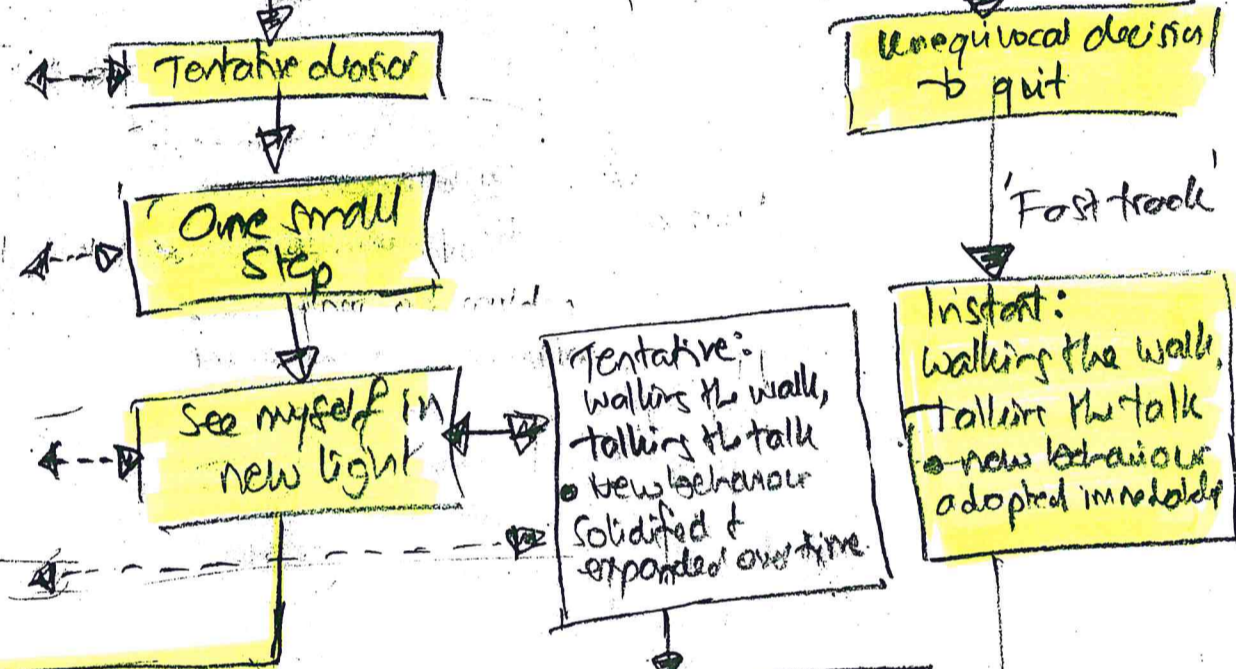 Tentative decision
One small
step
See myself in
new light
Tentative:
walking the walk,
talking the talk
• New behaviour
solidified &
expanded over time
Unequivocal decision
to quit
'Fast track'
Instant:
walking the walk,
talking the talk
• new behaviour
adopted immediately